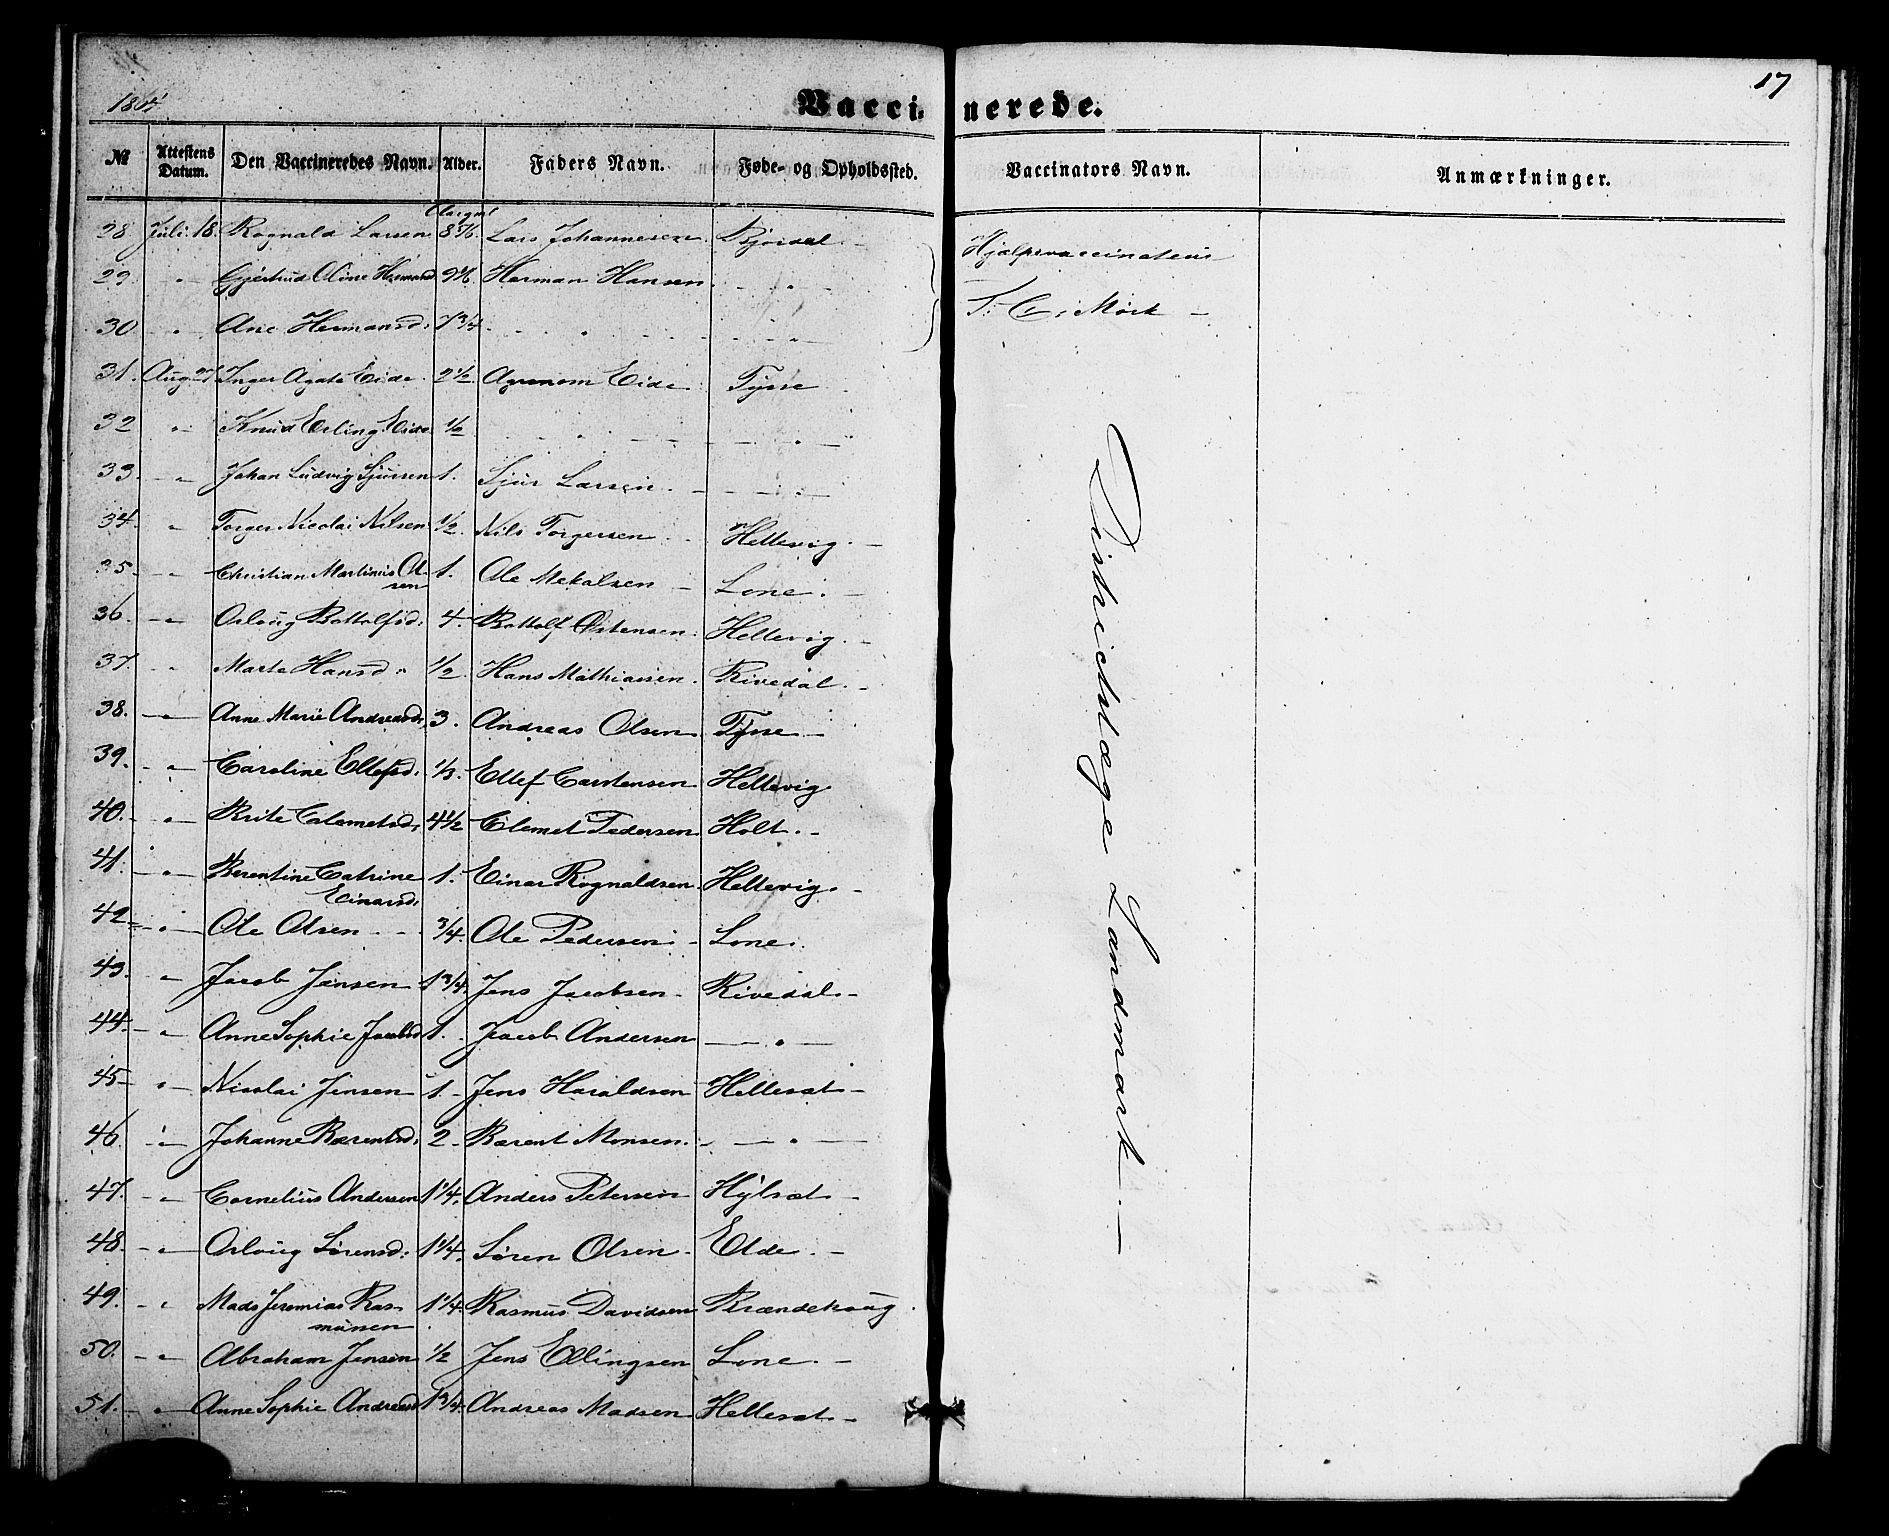 1864
17
Vaccinerede.
№ Attestens Datum. Den Vaccineredes Navn. Alder. Faders Navn. Føde- og Opholdssted. Vaccinators Navn. Anmærkninger.
28 Juli 18. Rognald Larsen Lars Johannesen. Hjælpevaccinateur
29 " Gjertrud Oline Hermand Herman Hansen "
30 " Ane Hermansd: 7 3/4 " " T: C. Mørk -
31. Aug 27 Inger Agate Eide. 2 1/2 Agronom Eide Tysse
32 " Knud Erling Eide 1/2 " "
33. " Johan Ludvig Sjursen 1. Sjur Larsen. "
34. " Torger Nicolai Nilsen 1/2 Nils Torgersen Hellevig.
35. " Christian Martinus Ol-
sen 1. Ole Mekalsen Lone.
36. " Oslaug Bottolfsd: 4. Bottolf Østensen. Hellevig.
37. " Marte Hansd. 1/2 Hans Mathiassen. Rivedal.
38. " Anne Marie Andreasd: 3. Andreas Olsen Tysse
39. " Caroline Ellefsd. 1/3. Ellef Carstensen Hellevig.
40. " Brite Clemetsd: 4 1/2 Clemet Pedersen Holt.
41. " Berentine Catrine
Einarsd: 1. Einar Rognaldsen Hellevig.
42 " Ole Olsen 3/4. Ole Pedersen. Lone.
43. " Jacob Jensen 1 3/4. Jens Jacobsen Rivedal.
44. " Anne Sophie Jacobsd 1. Jacob Andersen "
45 " Nicolai Jensen 1. Jens Haraldsen Hellesæt
46 " Johanne Bærentsd: 2 Bærent Monsen. "
47. " Cornelius Andersen 1 1/4. Anders Petersen Hylsæt
48. " Oslaug Sørensd: 1 1/4. Søren Olsen Elde.
49. " Mads Jeremias Ras-
musen 1 1/4. Rasmus Davidsen Brændehoug.
50. " Abraham Jensen 1/2 Jens Ellingsen Lone.
51. " Anne Sophie Andreasd 1 3/4. Andreas Madsen Hellesæt
Districtslæge Landmark.